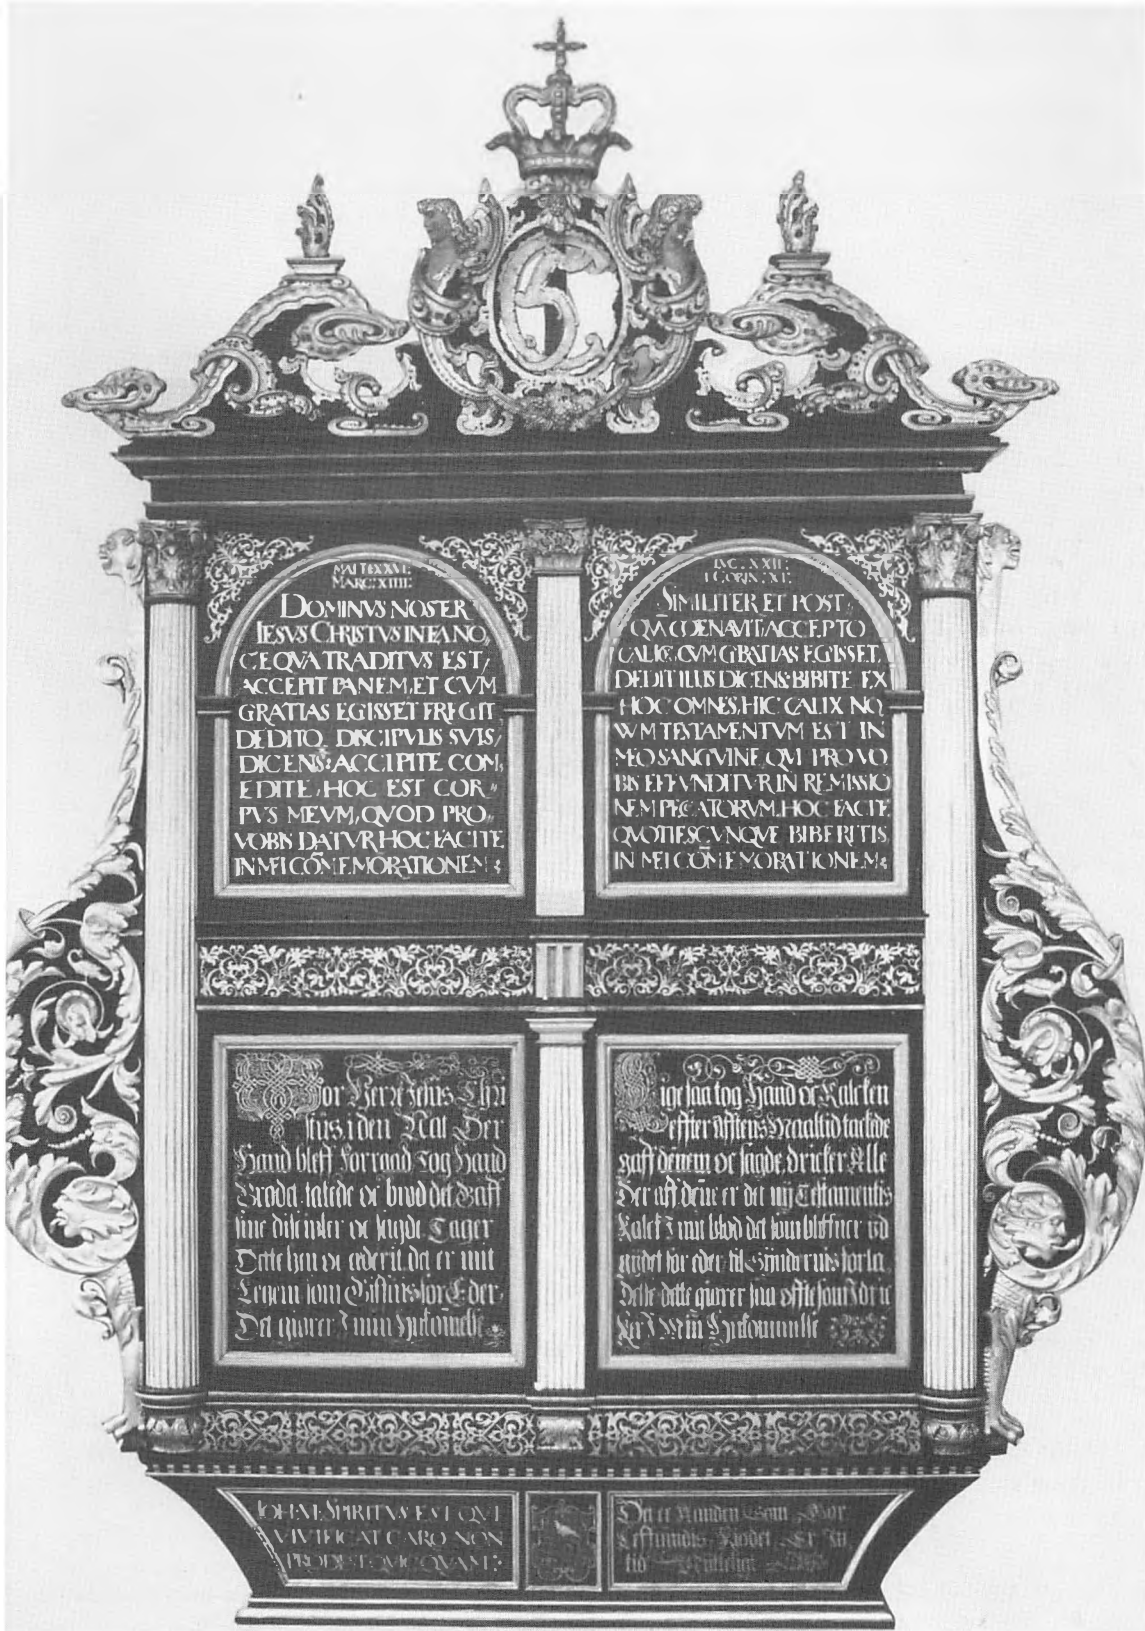 MATTE XXVI:
MARC: XIIII:
DOMINVS NOSTER
IESVS CHRISTVS IN EA NO,
CE QVA TRADITVS EST,
ACCEPIT PANEM, ET CVM
GRATIAS EGISSET FREGIT
DEDITQ, DISCIPVLIS SVIS,
DICENS: ACCIPITE COM,
EDITE, HOC EST COR,,
PVS MEVM, QVOD PRO,,
VOBIS DATVR HOC FACITE
IN MEI COM̄EMORATIONEM:
LVC: XXII:
I CORIN: XI:
SIMILITER ET POST,
QV̄A COENAVIT, ACCEPTO
CALICE, CVM GRATIAS EGISSET,
DEDIT ILLIS DICENS: BIBITE EX
HOC OMNES, HIC CALIX NO,
WM TESTAMENTVM EST IN
MEO SANGVINE, QVI PRO VO
BIS EFFVNDITVR IN REMISSIO
NEM PECCATORVM. HOC FACITE
QVOTIESCVNQVE BIBERITIS
IN MEI COM̄EMORATIONEM:
Vor Herre Jesus Chri
stus i den Nat Der
Hand bleff forraad Tog Hand
Brødet, tackede oc brød det Gaff
sine discipler oc sagde Tager
Dette hen oc æderit, det er mit
Legem som Giffuis for Eder,
Det giører I min Hukom̄else
Lige saa tog Hand oc Kalcken
effter Afftens Maaltid tackede
gaff dennem oc sagde, dricker Alle
Der aff, den̄e er det nÿ Testamentis
Kalck I mit blod det som bliffuer ud
gydet for eder til Søndernis forla,
Delse dette giører saa offte som I dric
ker I Min Hukommelse
IOH: VI: SPIRITVS EST QVI
VIVIFICAT CARO NON
PRODEST QVICQVAM:
Det er Aanden Som Gør
Leffuendis, Kiødet Er In
tid Nytteligt